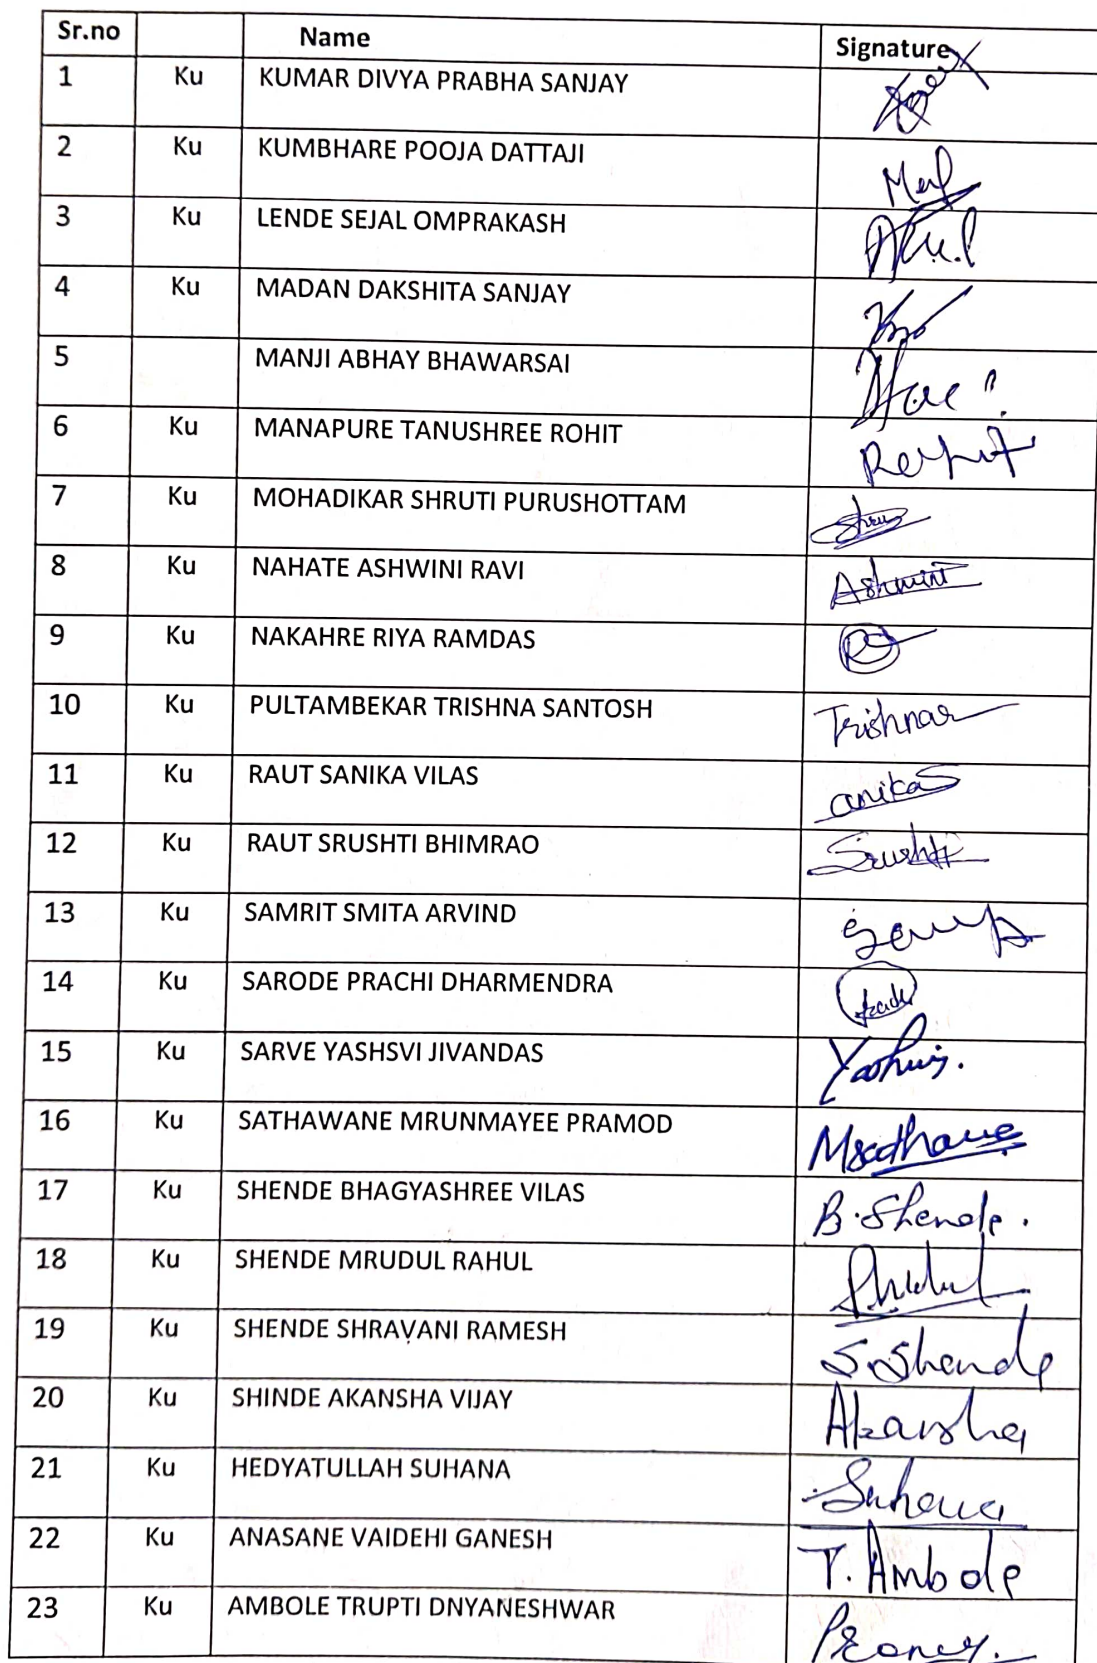 Sr.no Name Signature
1 Ku KUMAR DIVYA PRABHA SANJAY
2 Ku KUMBHARE POOJA DATTAJI
3 Ku LENDE SEJAL OMPRAKASH
4 Ku MADAN DAKSHITA SANJAY
5 MANJI ABHAY BHAWARSAI
6 Ku MANAPURE TANUSHREE ROHIT
7 Ku MOHADIKAR SHRUTI PURUSHOTTAM
8 Ku NAHATE ASHWINI RAVI Ashwini
9 Ku NAKAHRE RIYA RAMDAS
10 Ku PULTAMBEKAR TRISHNA SANTOSH Trishna
11 Ku RAUT SANIKA VILAS anikaS
12 Ku RAUT SRUSHTI BHIMRAO Srushti
13 Ku SAMRIT SMITA ARVIND
14 Ku SARODE PRACHI DHARMENDRA
15 Ku SARVE YASHSVI JIVANDAS
16 Ku SATHAWANE MRUNMAYEE PRAMOD
17 Ku SHENDE BHAGYASHREE VILAS B. Shende.
18 Ku SHENDE MRUDUL RAHUL
19 Ku SHENDE SHRAVANI RAMESH S. Shende
20 Ku SHINDE AKANSHA VIJAY Akansha
21 Ku HEDYATULLAH SUHANA Suhana
22 Ku ANASANE VAIDEHI GANESH T. Ambole
23 Ku AMBOLE TRUPTI DNYANESHWAR